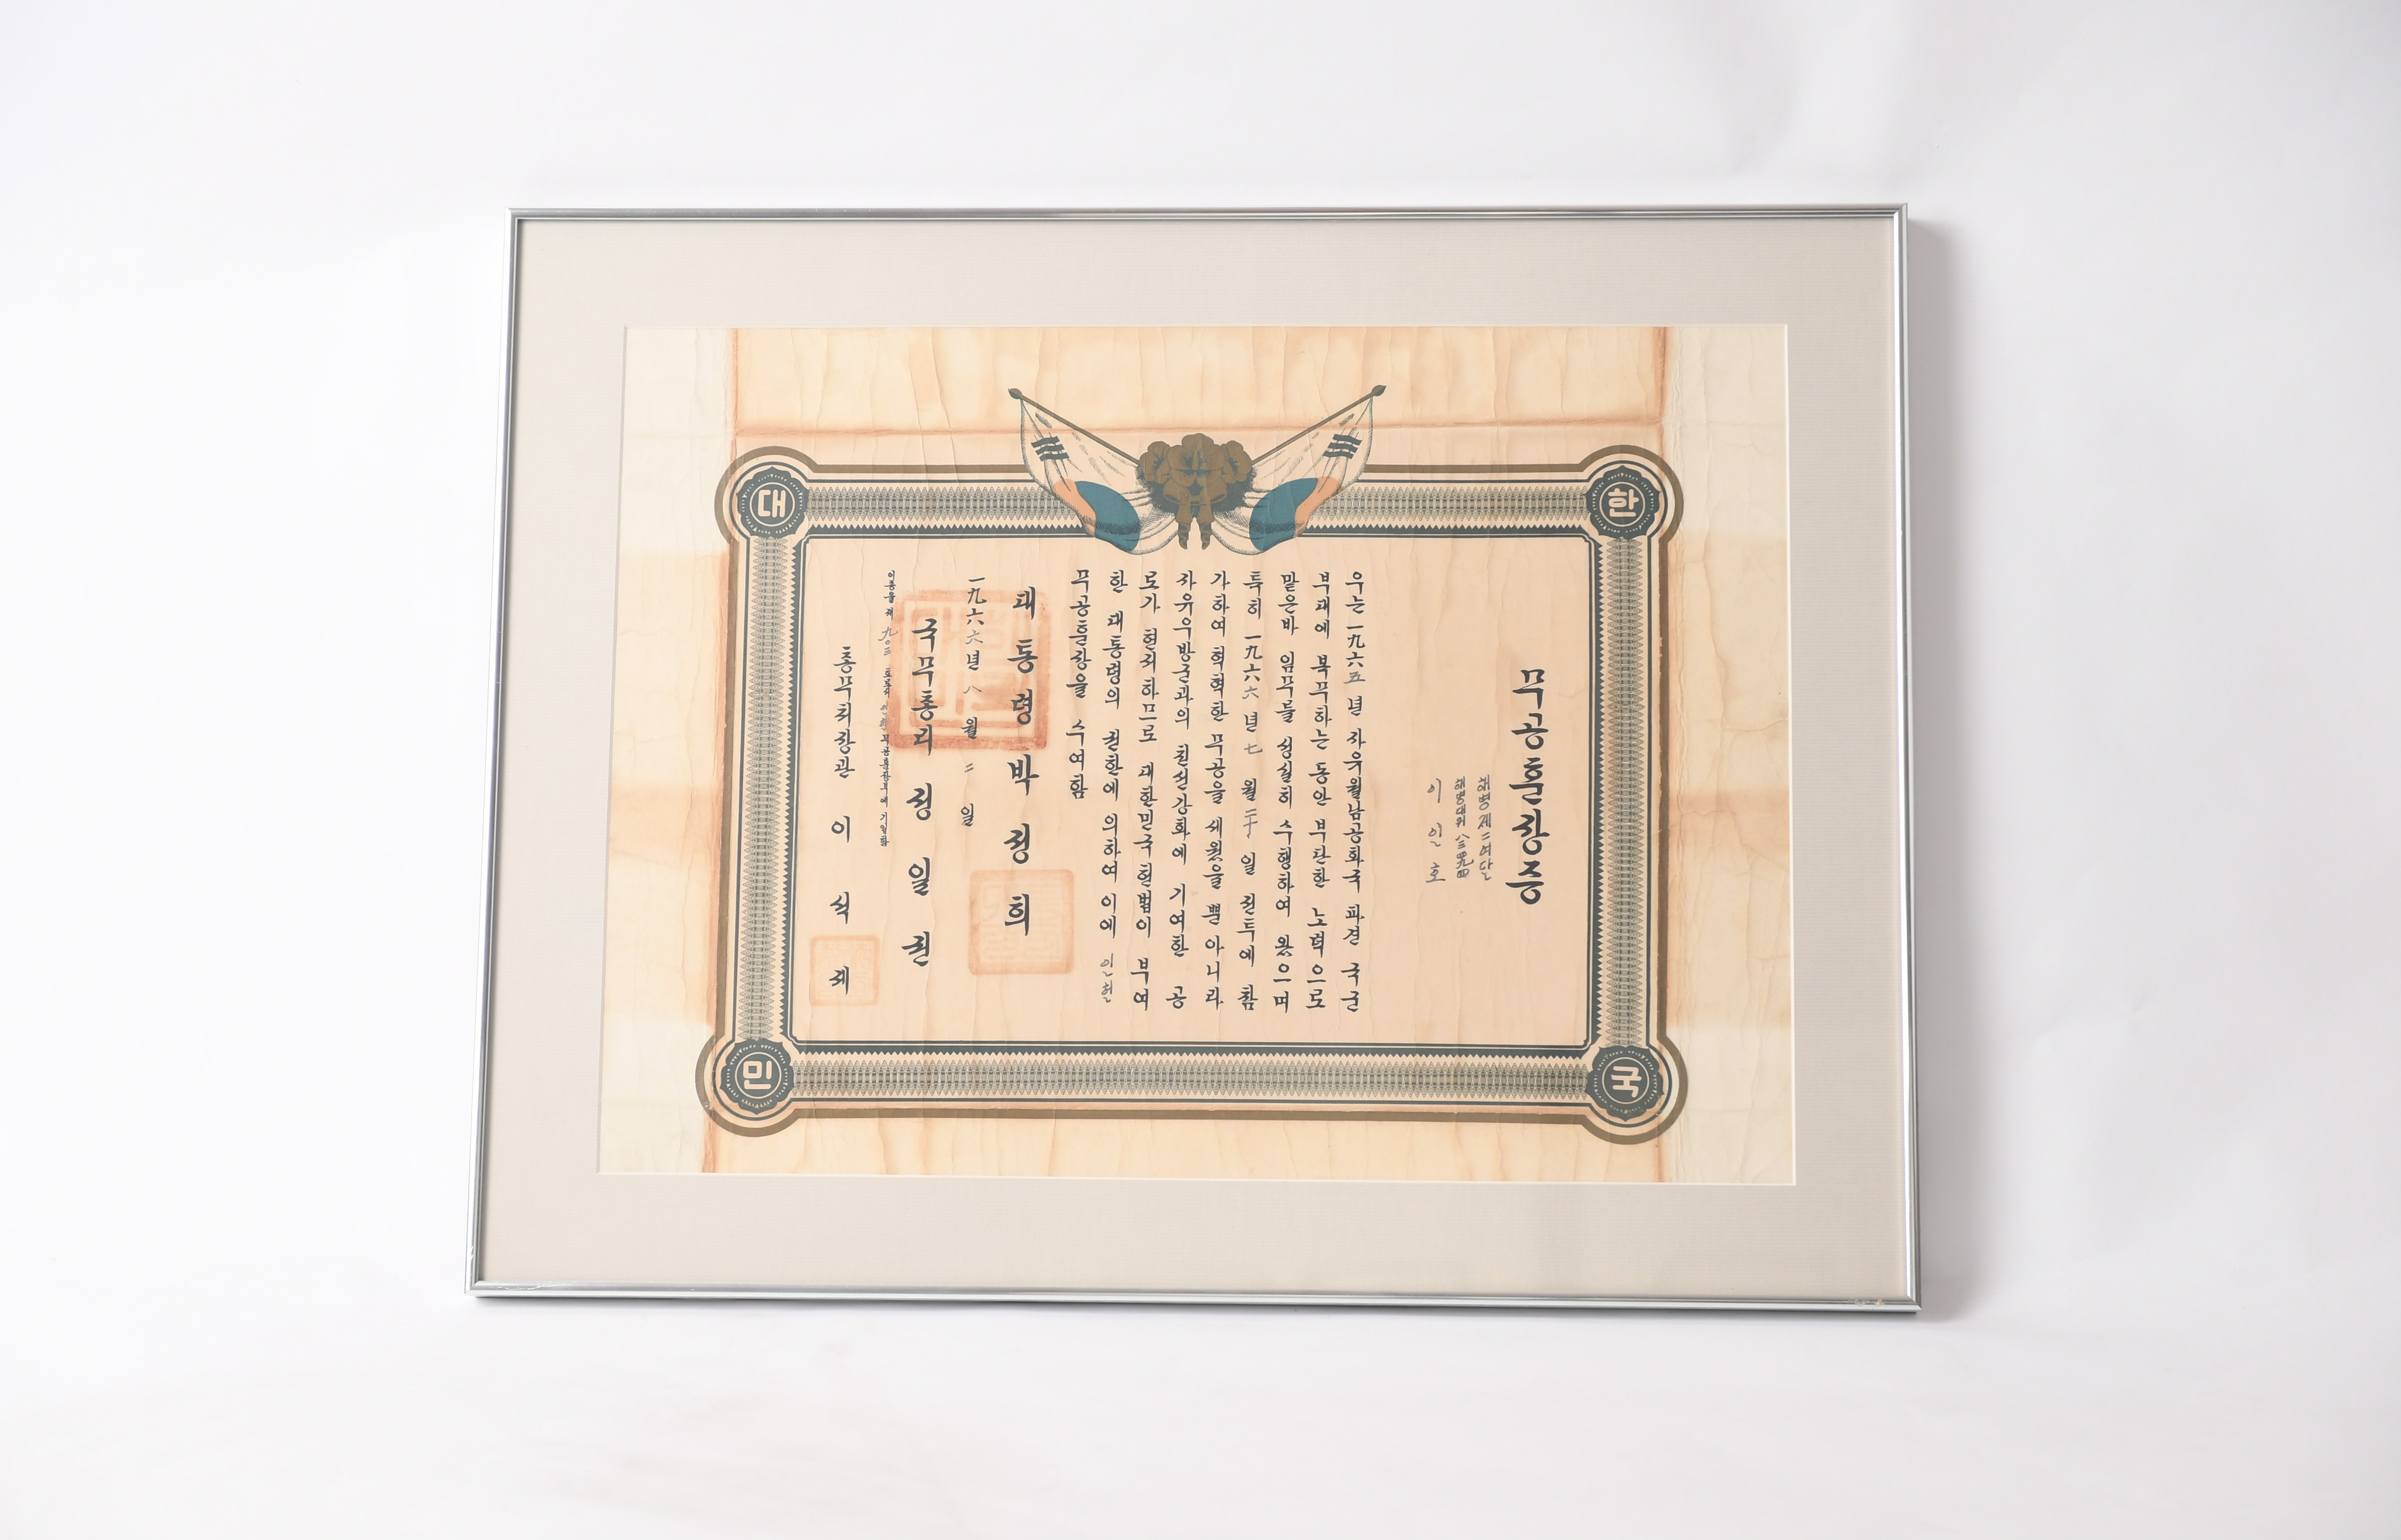 한
대
민
국
무공훈장증
해병제二여단
해병대위 八三四九四
이인호
우는 一九六五년 자유월남공화국 파견 국군
부대에 복무하는 동안 부단한 노력으로
맡은바 임무를 성실히 수행하여 왔으며
특히 一九六六년 七월 三十일 전투에 참
가하여 혁혁한 무공을 세웠을 뿐 아니라
자유우방군과의 친선강화에 기여한 공
로가 현저하므로 대한민국헌법이 부여
한 대통령의 권한에 의하여 이에 인헌
무공훈장을 수여함
대통령 박정희
一九六六년 八월 二일
국무총리 정일권
이증을 제 九〇三 호로서 인헌무공훈장부에 기입함
총무처장관 이석제